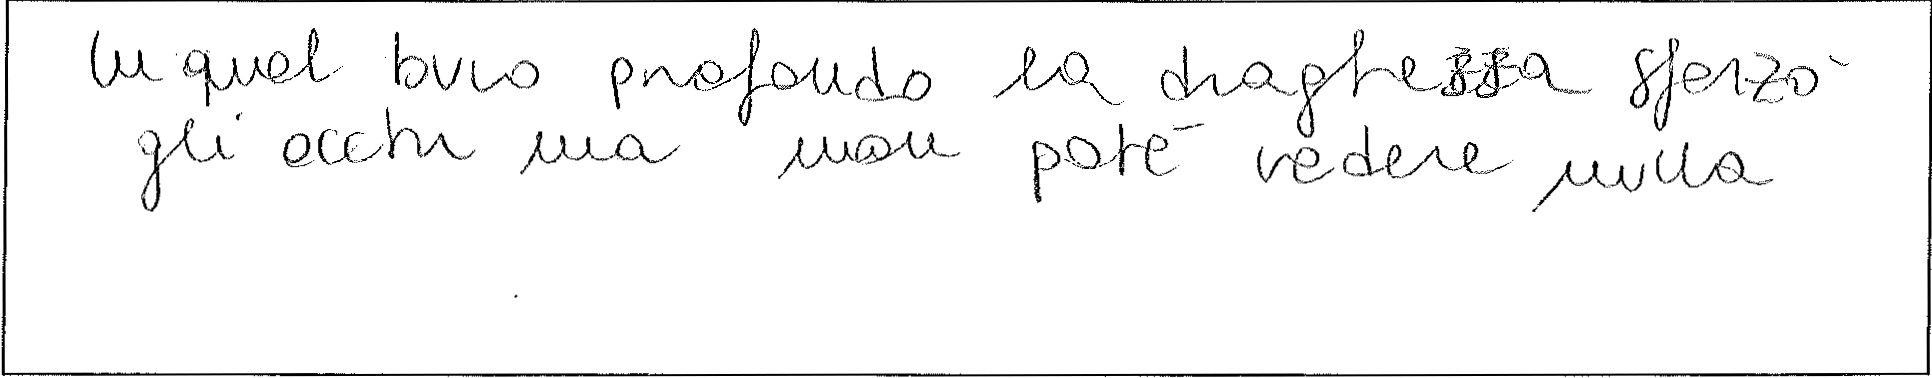 In quel buio profondo la draghessa sferzò
gli occhi ma non poté vedere nulla